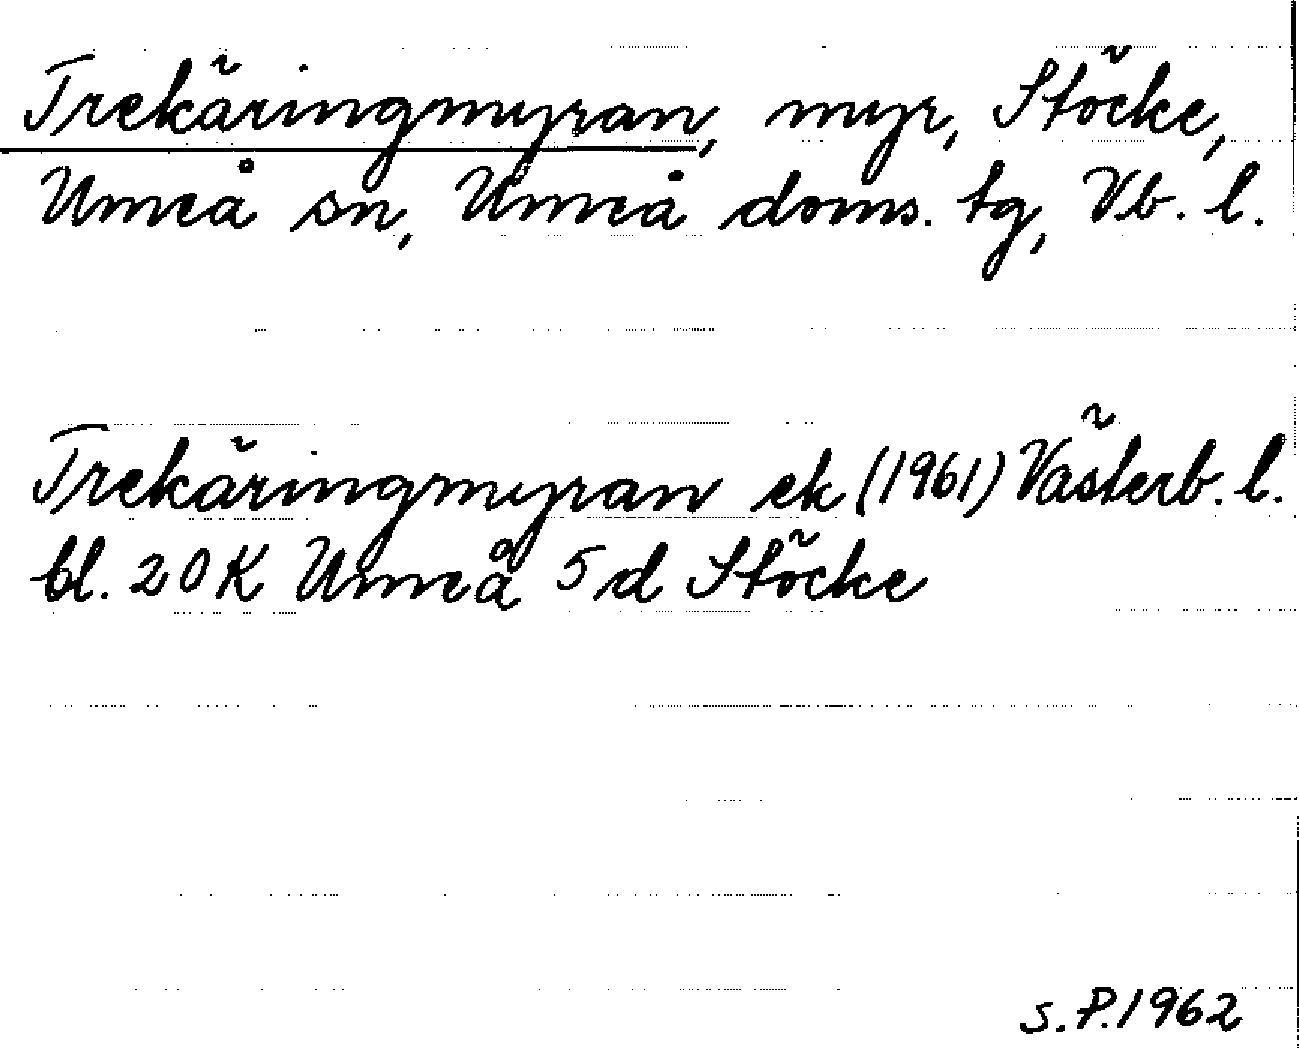 Trekäringmyran, myr, Stöcke,
Umeå sn, Umeå doms. tg, Vb. l.
Trekäringmyran ek (1961) Västerb. l.
bl. 20K Umeå 5d Stöcke
S.P.1962